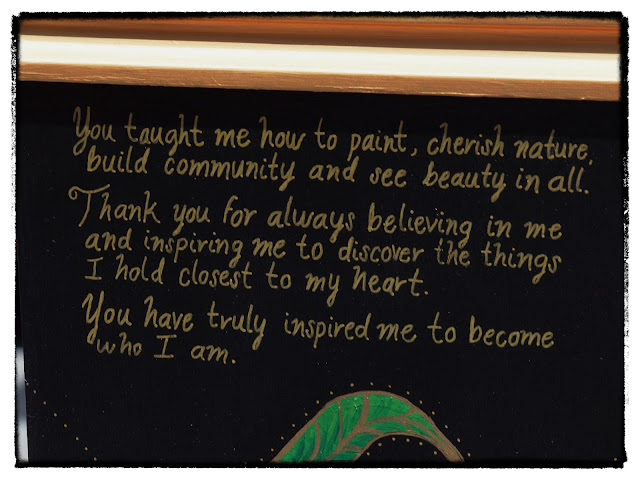 You taught me how to paint, cherish nature,
build community and see beauty in all.
Thank you for always believing in me
and inspiring me to discover the things
I hold closest to my heart.
You have truly inspired me to become
who I am.